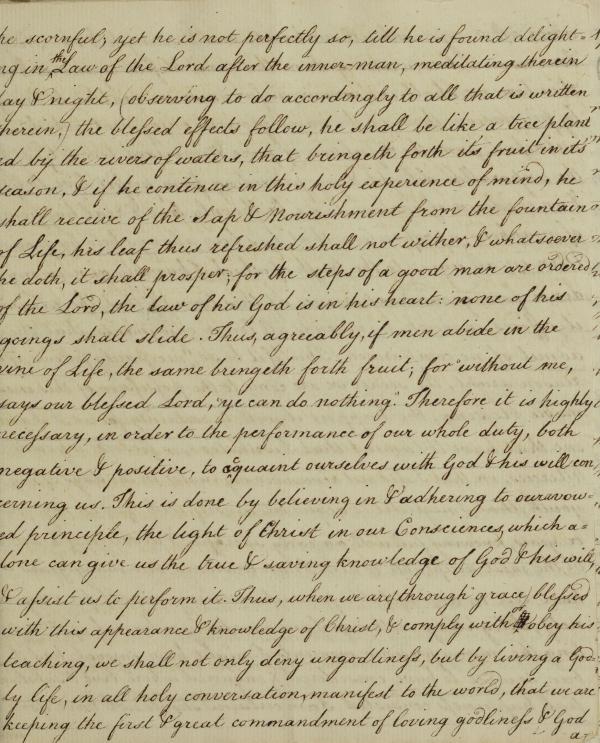 he scornful; yet he is not perfectly so, till he is found delight=
ng in the Law of the Lord after the inner-man, meditating therein
ay & night, (observing to do accordingly to all that is written
herein,) the blessed effects follow, he shall be like a tree plant
ed by the rivers of waters, that bringeth forth its fruit in its
season, & if he continue in this holy experience of mind, he
shall receive of the Sap & Nourishment from the fountain
of Life, his leaf thus refreshed shall not wither, & whatsoever
he doth, it shall prosper; for the steps of a good man are ordered
of the Lord, the law of his God is in his heart: none of his
goings shall slide. Thus, agreeably, if men abide in the
vine of Life, the same bringeth forth fruit; for "without me,
says our blessed Lord, "ye can do nothing." Therefore it is highly
necessary, in order to the performance of our whole duty, both
negative & positive, to acquaint ourselves with God & his will con
cerning us. This is done by believing in & adhering to our avow=
ed principle, the light of Christ in our Consciences, which a=
lone can give us the true & saving knowledge of God & his will,
& assist us to perform it. Thus, when we are (through grace) blessed
with this appearance & knowledge of Christ, & comply with obey his
teaching, we shall not only deny ungodliness, but by living a God=
ly life, in all holy conversation, manifest to the world, that we are
keeping the first & great commandment of loving godliness & God